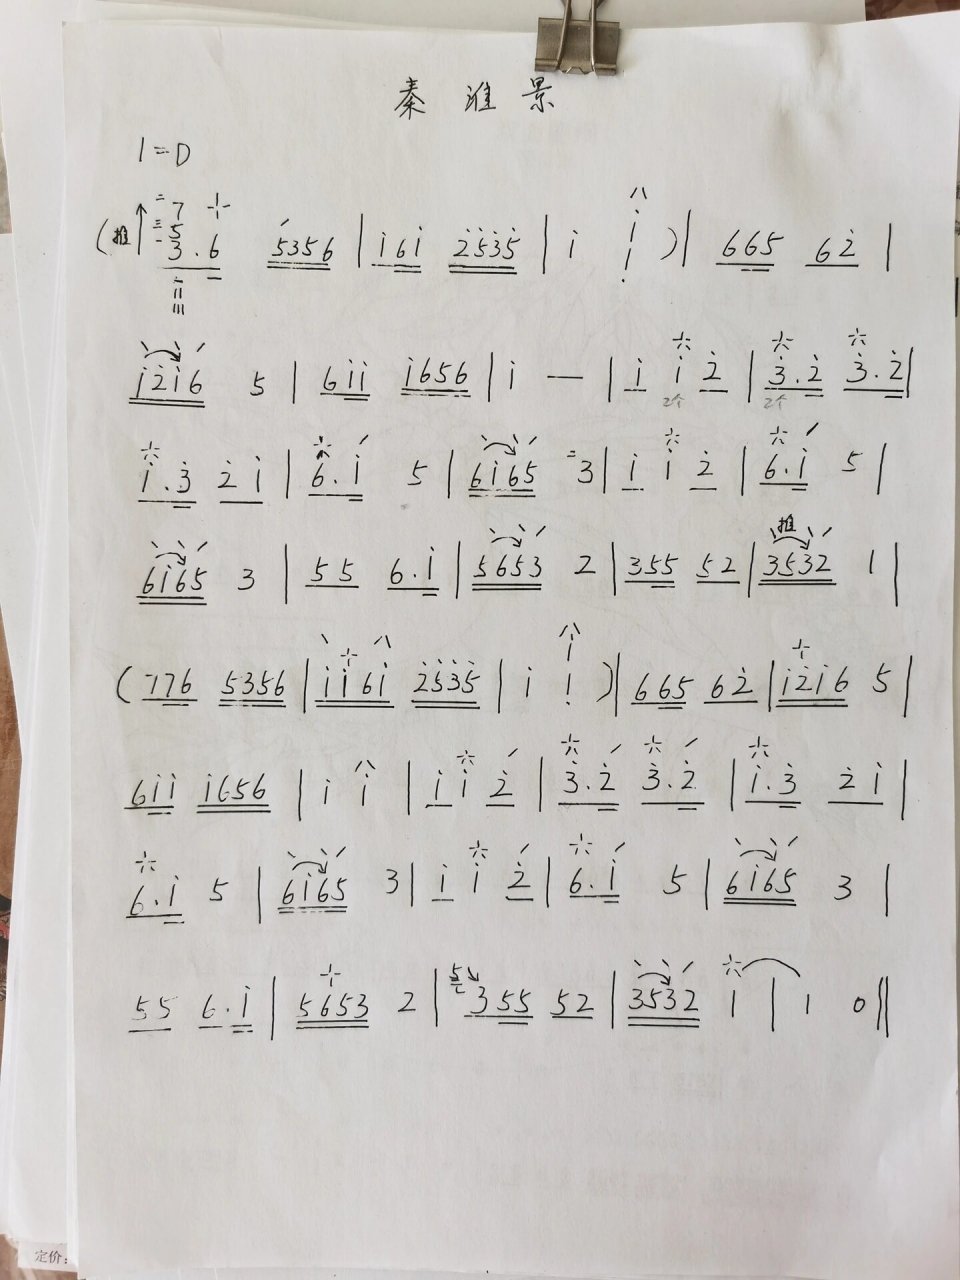 秦淮景
1=D
(推 7 5 3.6 5356 | i̇6i̇ 2̇5̇3̇5̇ | i̇ i̇ ) | 665 62̇ |
i̇2̇i̇6 5 | 6i̇i̇ i̇656 | i̇ — | i̇ i̇ 2̇ | 3̇.2̇ 3̇.2̇ |
2个 2个
i̇.3̇ 2̇i̇ | 6.i̇ 5 | 6i̇65 3 | i̇ i̇ 2̇ | 6.i̇ 5 |
推
6i̇65 3 | 55 6.i̇ | 5653 2 | 355 52 | 3532 1 |
(776 5356 | i̇i̇6i̇ 2̇5̇3̇5̇ | i̇ i̇ ) | 665 62̇ | i̇2̇i̇6 5 |
6i̇i̇ i̇656 | i̇ i̇ | i̇ i̇ 2̇ | 3̇.2̇ 3̇.2̇ | i̇.3̇ 2̇i̇ |
6.i̇ 5 | 6i̇65 3 | i̇ i̇ 2̇ | 6.i̇ 5 | 6i̇65 3 |
55 6.i̇ | 5653 2 | 5 355 52 | 3532 1 | 1 0 ‖
定价: